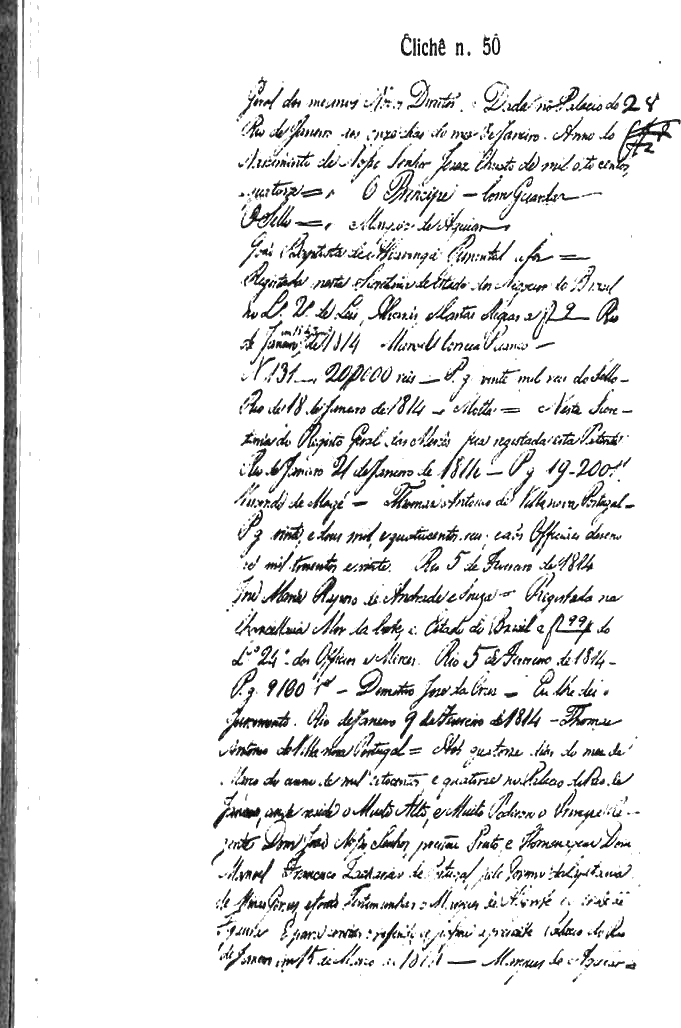 Clichê n. 50
Geral dos mesmos Dada no Palacio do 28
Rio de Janeiro aos onze dias do mes de Janeiro. Anno do
Nascimento de Nosso Senhor Jesus Christo de mil oito centos,
e quatorze = O Principe - Com Guarda
O Sello = Marquez de Aguiar
João Baptista de Alvarenga Pimentel a fez =
Registada nesta Secretaria de Estado dos Negocios do Brazil
no L.º 2.º de Leis, Alvarás, e Cartas Regias a f 9 Rio
de Janeiro de 1814 Manoel Correia Picanço -
N. 131 - 20$000 reis - P. g. vinte mil reis do Sello -
Rio de 18 de Janeiro de 1814 - Mattos = Nesta Secre-
taria do Registo Geral das Mercês fica registada esta Patente
Rio de Janeiro 21 de Janeiro de 1814 - P g 19-200 r.s
Visconde de Magé - Thomaz Antonio de Villanova Portugal -
P g vinte, e dous mil, e quatrocentos reis; e aos Officiaes
mil trezentos e vinte. Rio 5 de Fevereiro de 1814
José Maria Raposo de Andrade e Souza = Registada na
Chancellaria Mor da Corte, e Estado do Brazil a f 99 do
L.º 24.º dos Officios e Merces. Rio 5 de Fevereiro de 1814 -
P. g. 9100 r.s - Demetrio José da Cruz - Eu lhe dei o
Juramento. Rio de Janeiro 9 de Fevereiro de 1814 - Thomaz
Antonio de Villa nova Portugal = Aos quatorze dias do mez de
Março do anno de mil oitocentos, e quatorze no Palacio do Rio de
Janeiro, onde reside o Muito Alto, e Muito Poderoso o Principe Re-
gente Dom João Nosso Senhor, Preito, e Homenagem Dom
Manoel Francisco Zacharias de Portugal pelo Governo da Capitania
de Minas Geraes, Testemunhas o Marquez de e o Conde de
E para constar o referido se a presente Palacio do Rio
de Janeiro em 15 de Março de 1814 - Marquez de Aguiar =